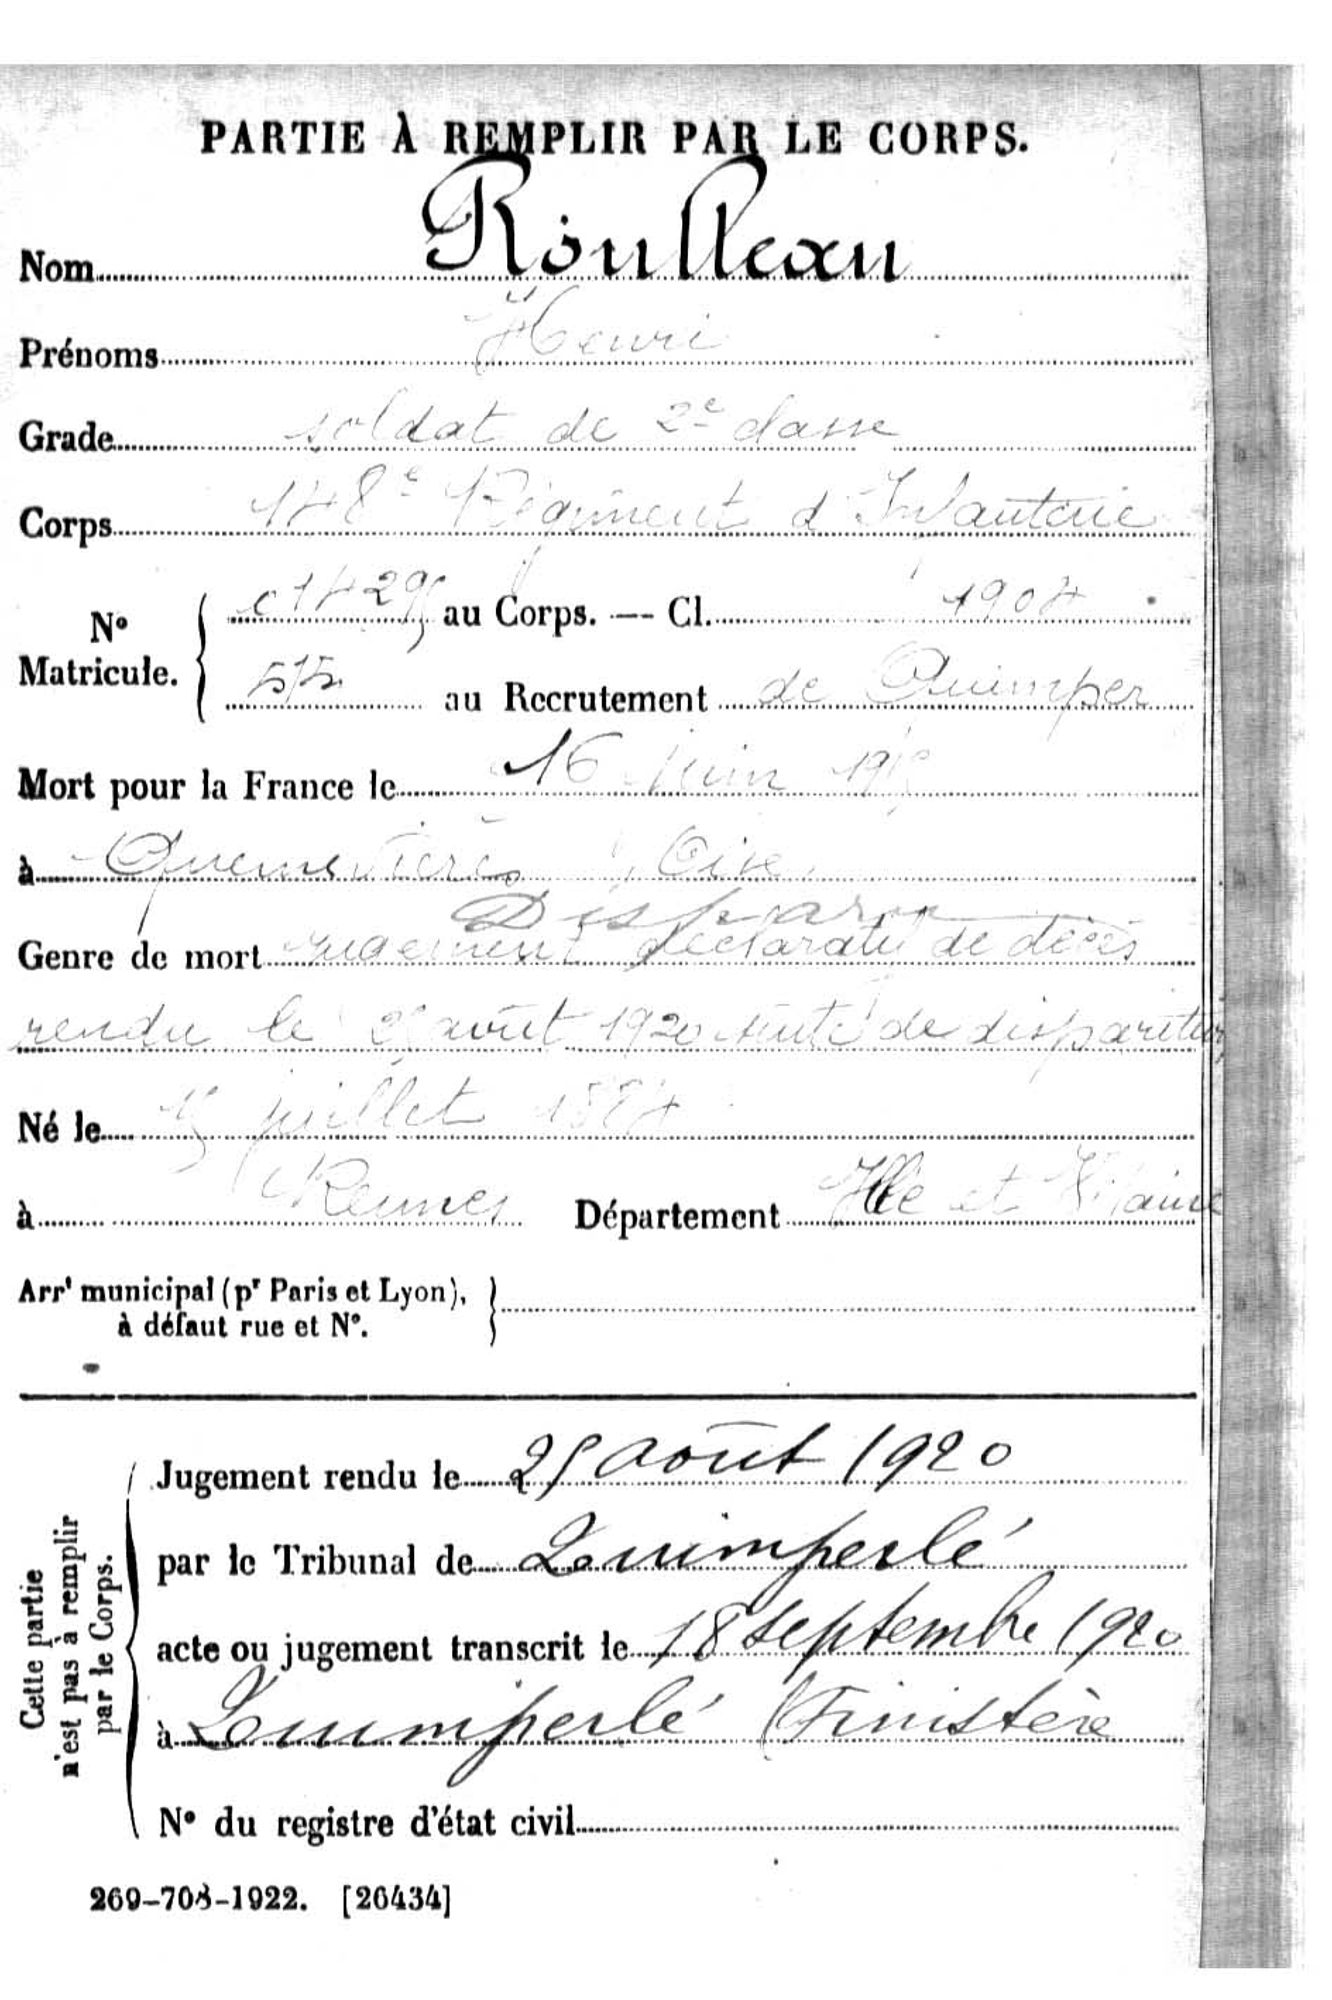 PARTIE À REMPLIR PAR LE CORPS.
Nom Roulleau
Prénoms Henri
Grade soldat de 2e classe
Corps 148e Régiment d'Infanterie
No Matricule. { au Corps. — Cl. 1904
au Recrutement de Quimper
Mort pour la France le 16 Juin 1915
à Quennevières Oise
Disparu
Genre de mort jugement déclaratif de décès
rendu le 25 août 1920 suite de disparition
Né le 15 juillet 1884
à Rennes Département Ille et Vilaine
Arrt municipal (pr Paris et Lyon), }
à défaut rue et No.
Cette partie
n'est pas à remplir
par le Corps.
Jugement rendu le 25 août 1920
par le Tribunal de Quimperlé
acte ou jugement transcrit le 18 septembre 1920
à Quimperlé (Finistère
No du registre d'état civil
269-708-1922. [26434]